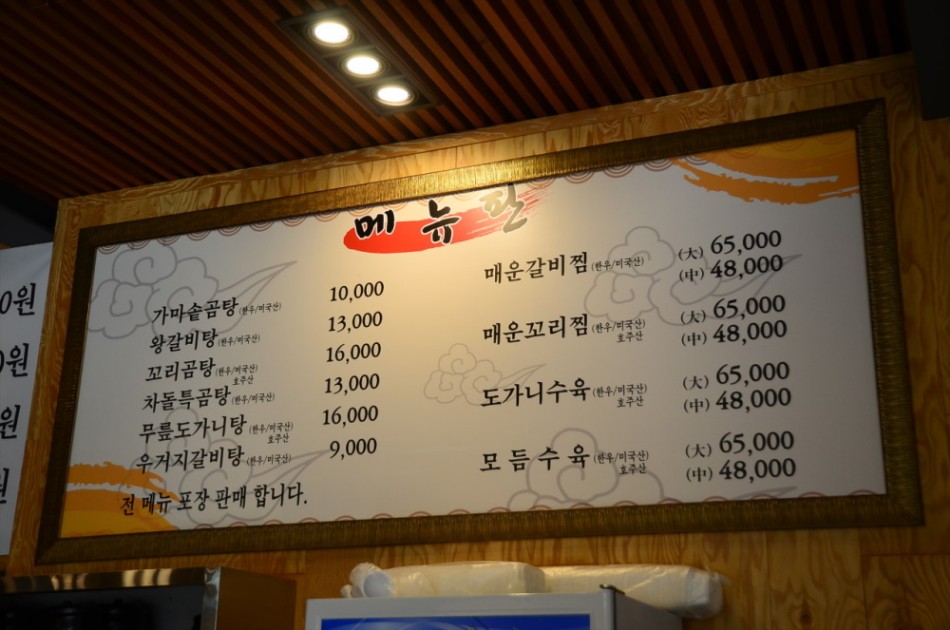 메뉴판
가마솥곰탕(한우/미국산) 10,000
왕갈비탕(한우/미국산) 13,000
꼬리곰탕(한우/미국산) 16,000
호주산
차돌특곰탕(한우/미국산) 13,000
무릎도가니탕(한우/미국산) 16,000
호주산
우거지갈비탕(한우/미국산) 9,000
전 메뉴 포장 판매 합니다.
매운갈비찜(한우/미국산) (大) 65,000
(中) 48,000
매운꼬리찜(한우/미국산) (大) 65,000
호주산 (中) 48,000
도가니수육(한우/미국산) (大) 65,000
호주산 (中) 48,000
모듬수육(한우/미국산) (大) 65,000
호주산 (中) 48,000
0원
0원
원